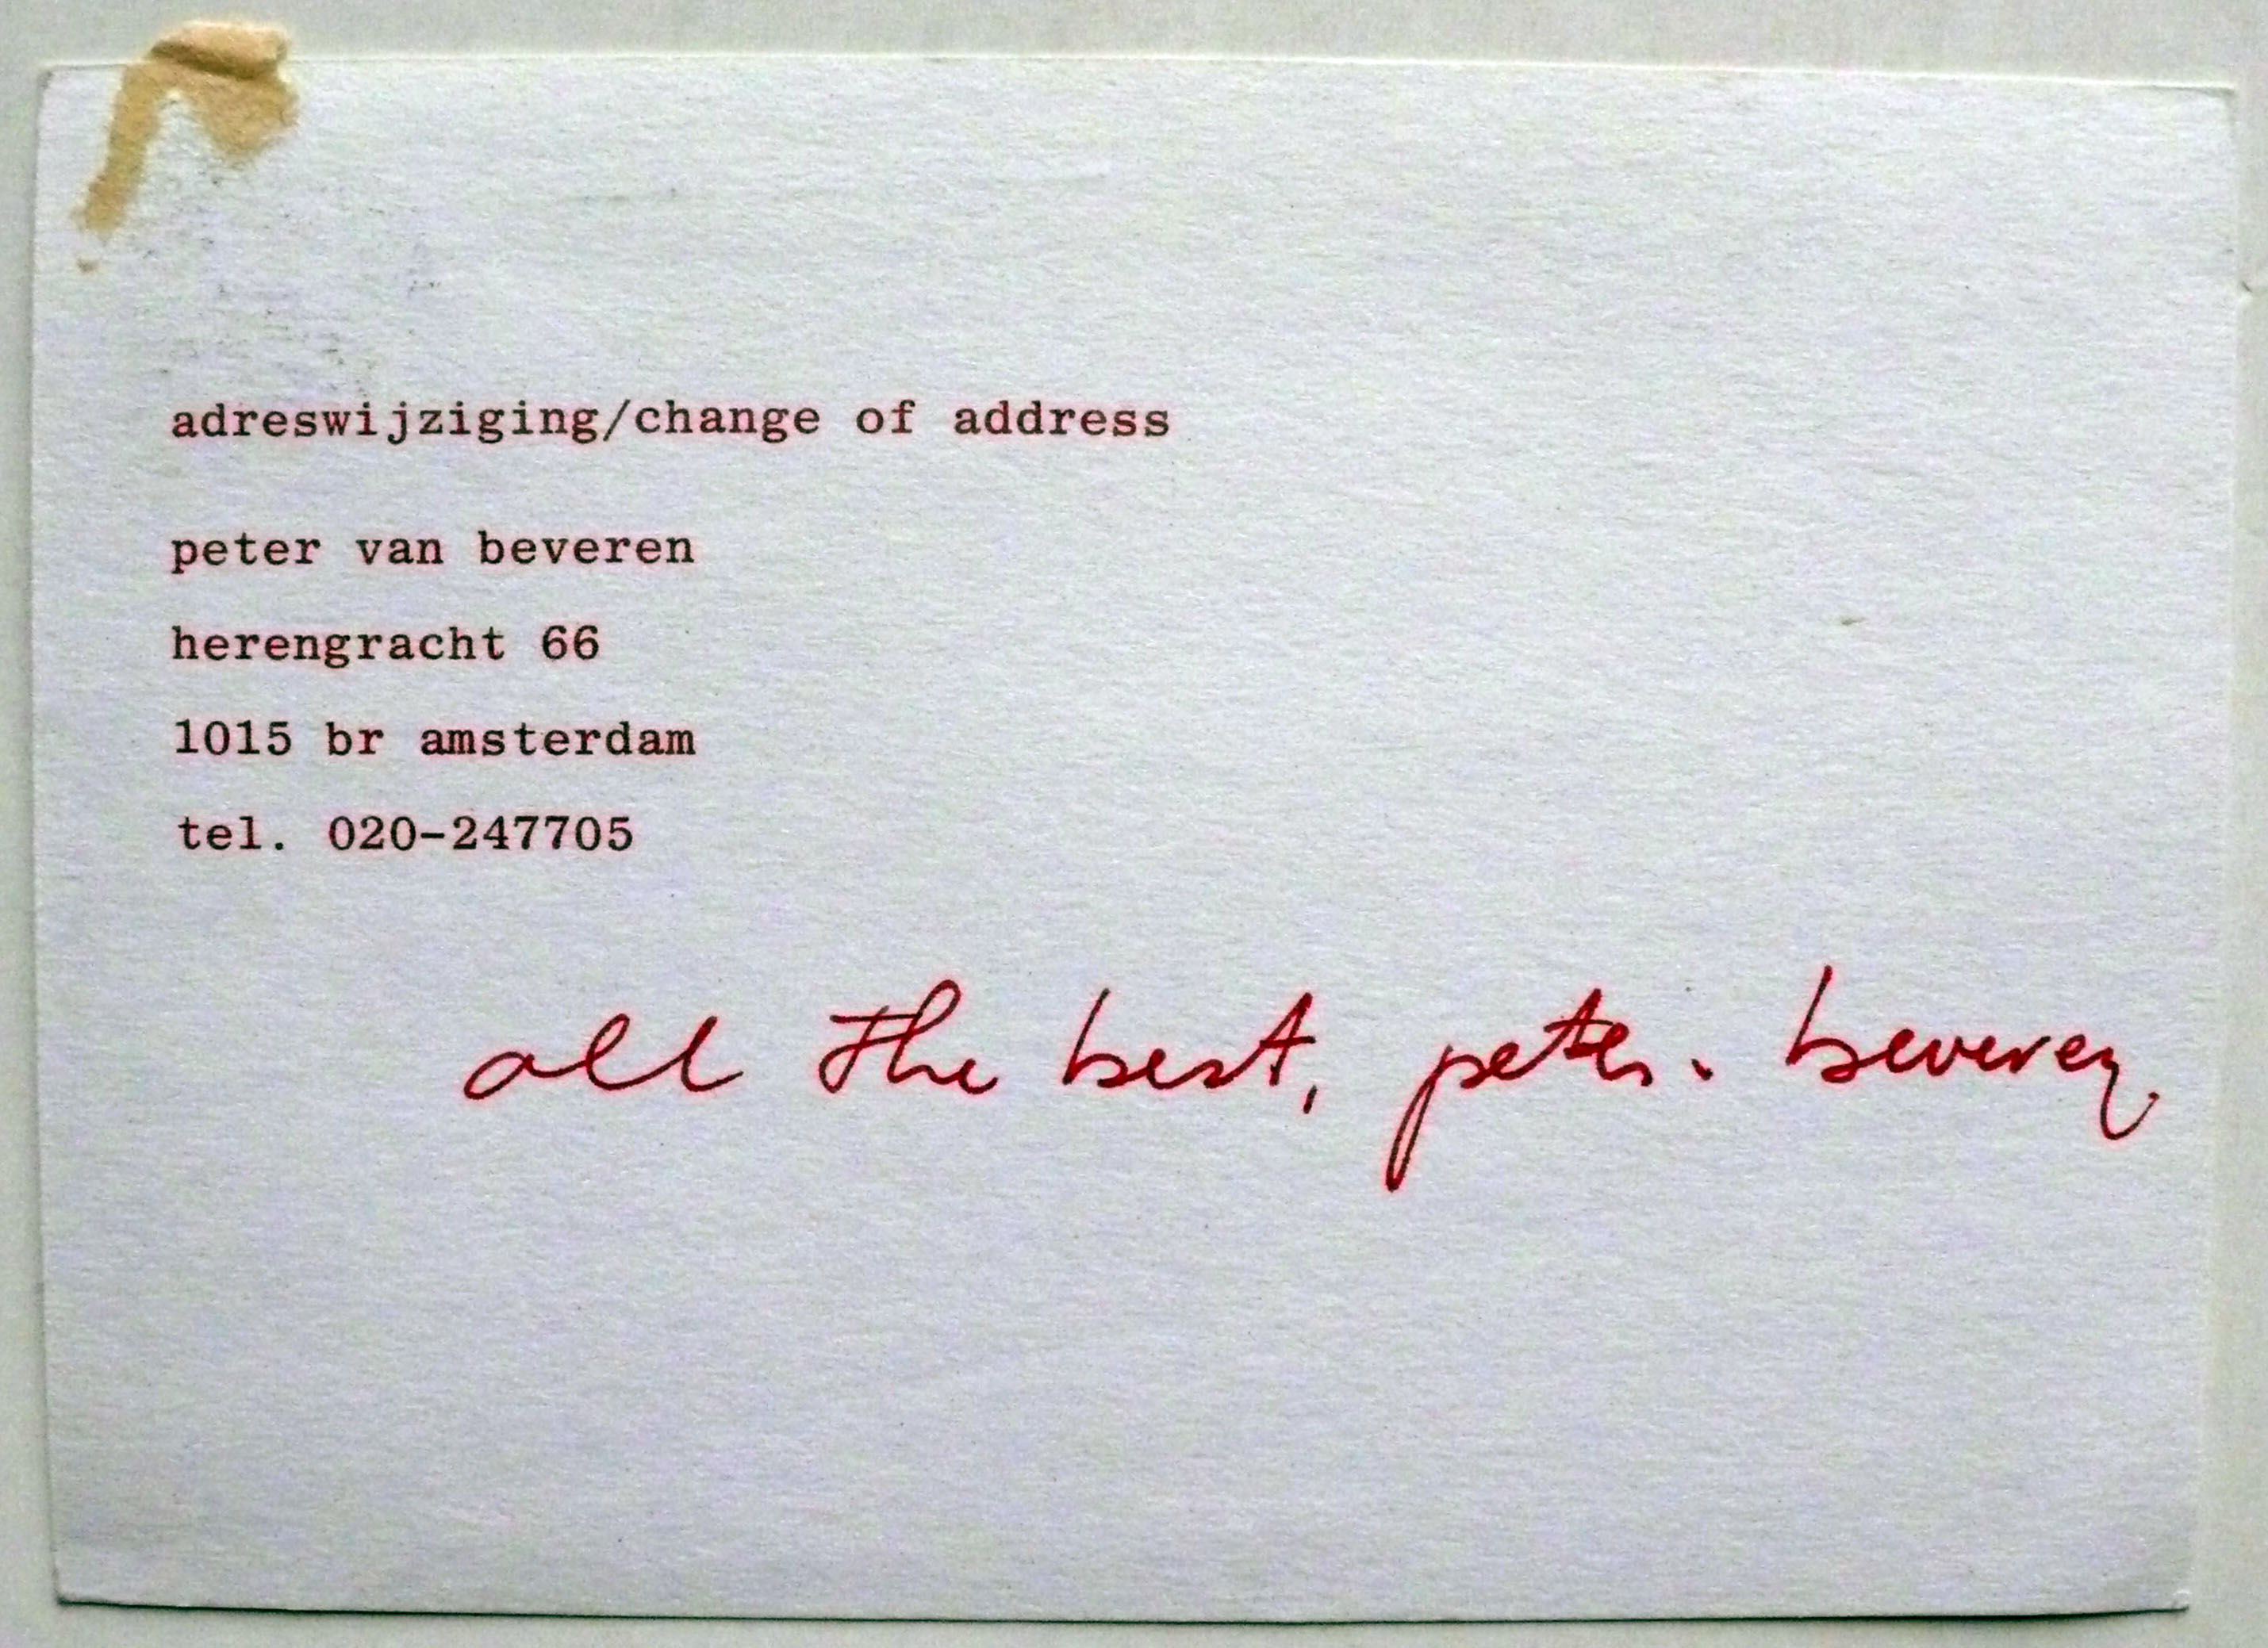 adreswijziging/change of address
peter van beveren
herengracht 66
1015 br amsterdam
tel. 020-247705
all the best, peter. beveren